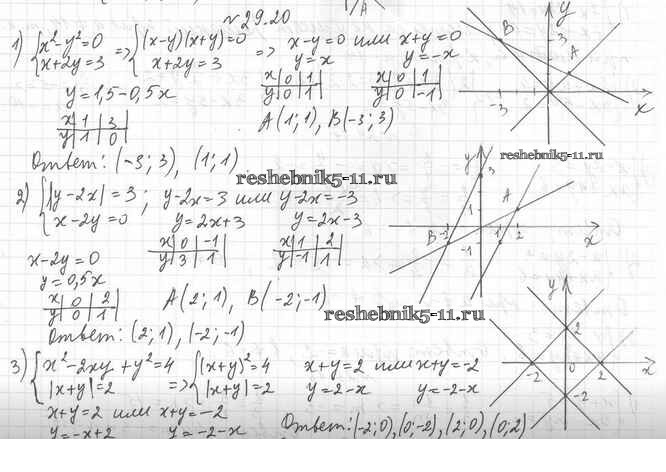 №29.20
1) {x²-y²=0 => {(x-y)(x+y)=0 => x-y=0 или x+y=0
x+2y=3 x+2y=3 y=x y=-x
x|0|1| x|0|1|
y|0|1| y|0|-1|
y=1,5-0,5x
x|1|3|
y|1|0|
A(1;1), B(-3;3)
Ответ: (-3;3), (1;1)
reshebnik5-11.ru
2) {|y-2x|=3; y-2x=3 или y-2x=-3
x-2y=0 y=2x+3 y=2x-3
x|0|-1| x|1|2|
y|3|1| y|-1|1|
x-2y=0
y=0,5x
x|0|2|
y|0|1|
A(2;1), B(-2;-1)
Ответ: (2;1), (-2;-1)
reshebnik5-11.ru
3) {x²-2xy+y²=4 => {(x+y)²=4 x+y=2 или x+y=-2
|x+y|=2 |x+y|=2 y=2-x y=-2-x
x+y=2 или x+y=-2
y=-x+2 y=-2-x
Ответ: (-2;0), (0;-2), (2;0), (0;2)
A
y
B
3
A
-3
x
reshebnik5-11.ru
y
3
A
1
B
-2
1
2
-1
x
y
2
-2
0
2
x
-2